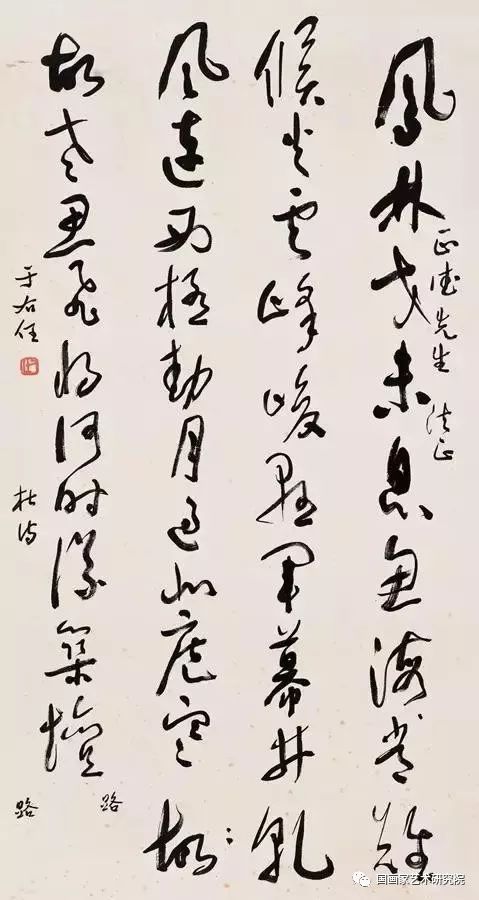 鳳林戈未息魚海常難
正德先生 法正
候火雲峰峻懸軍幕井乾
風連西極動月過北庭寒故
故老思飛將何時議築壇
路
杜诗
于右任
路
国画家艺术研究院